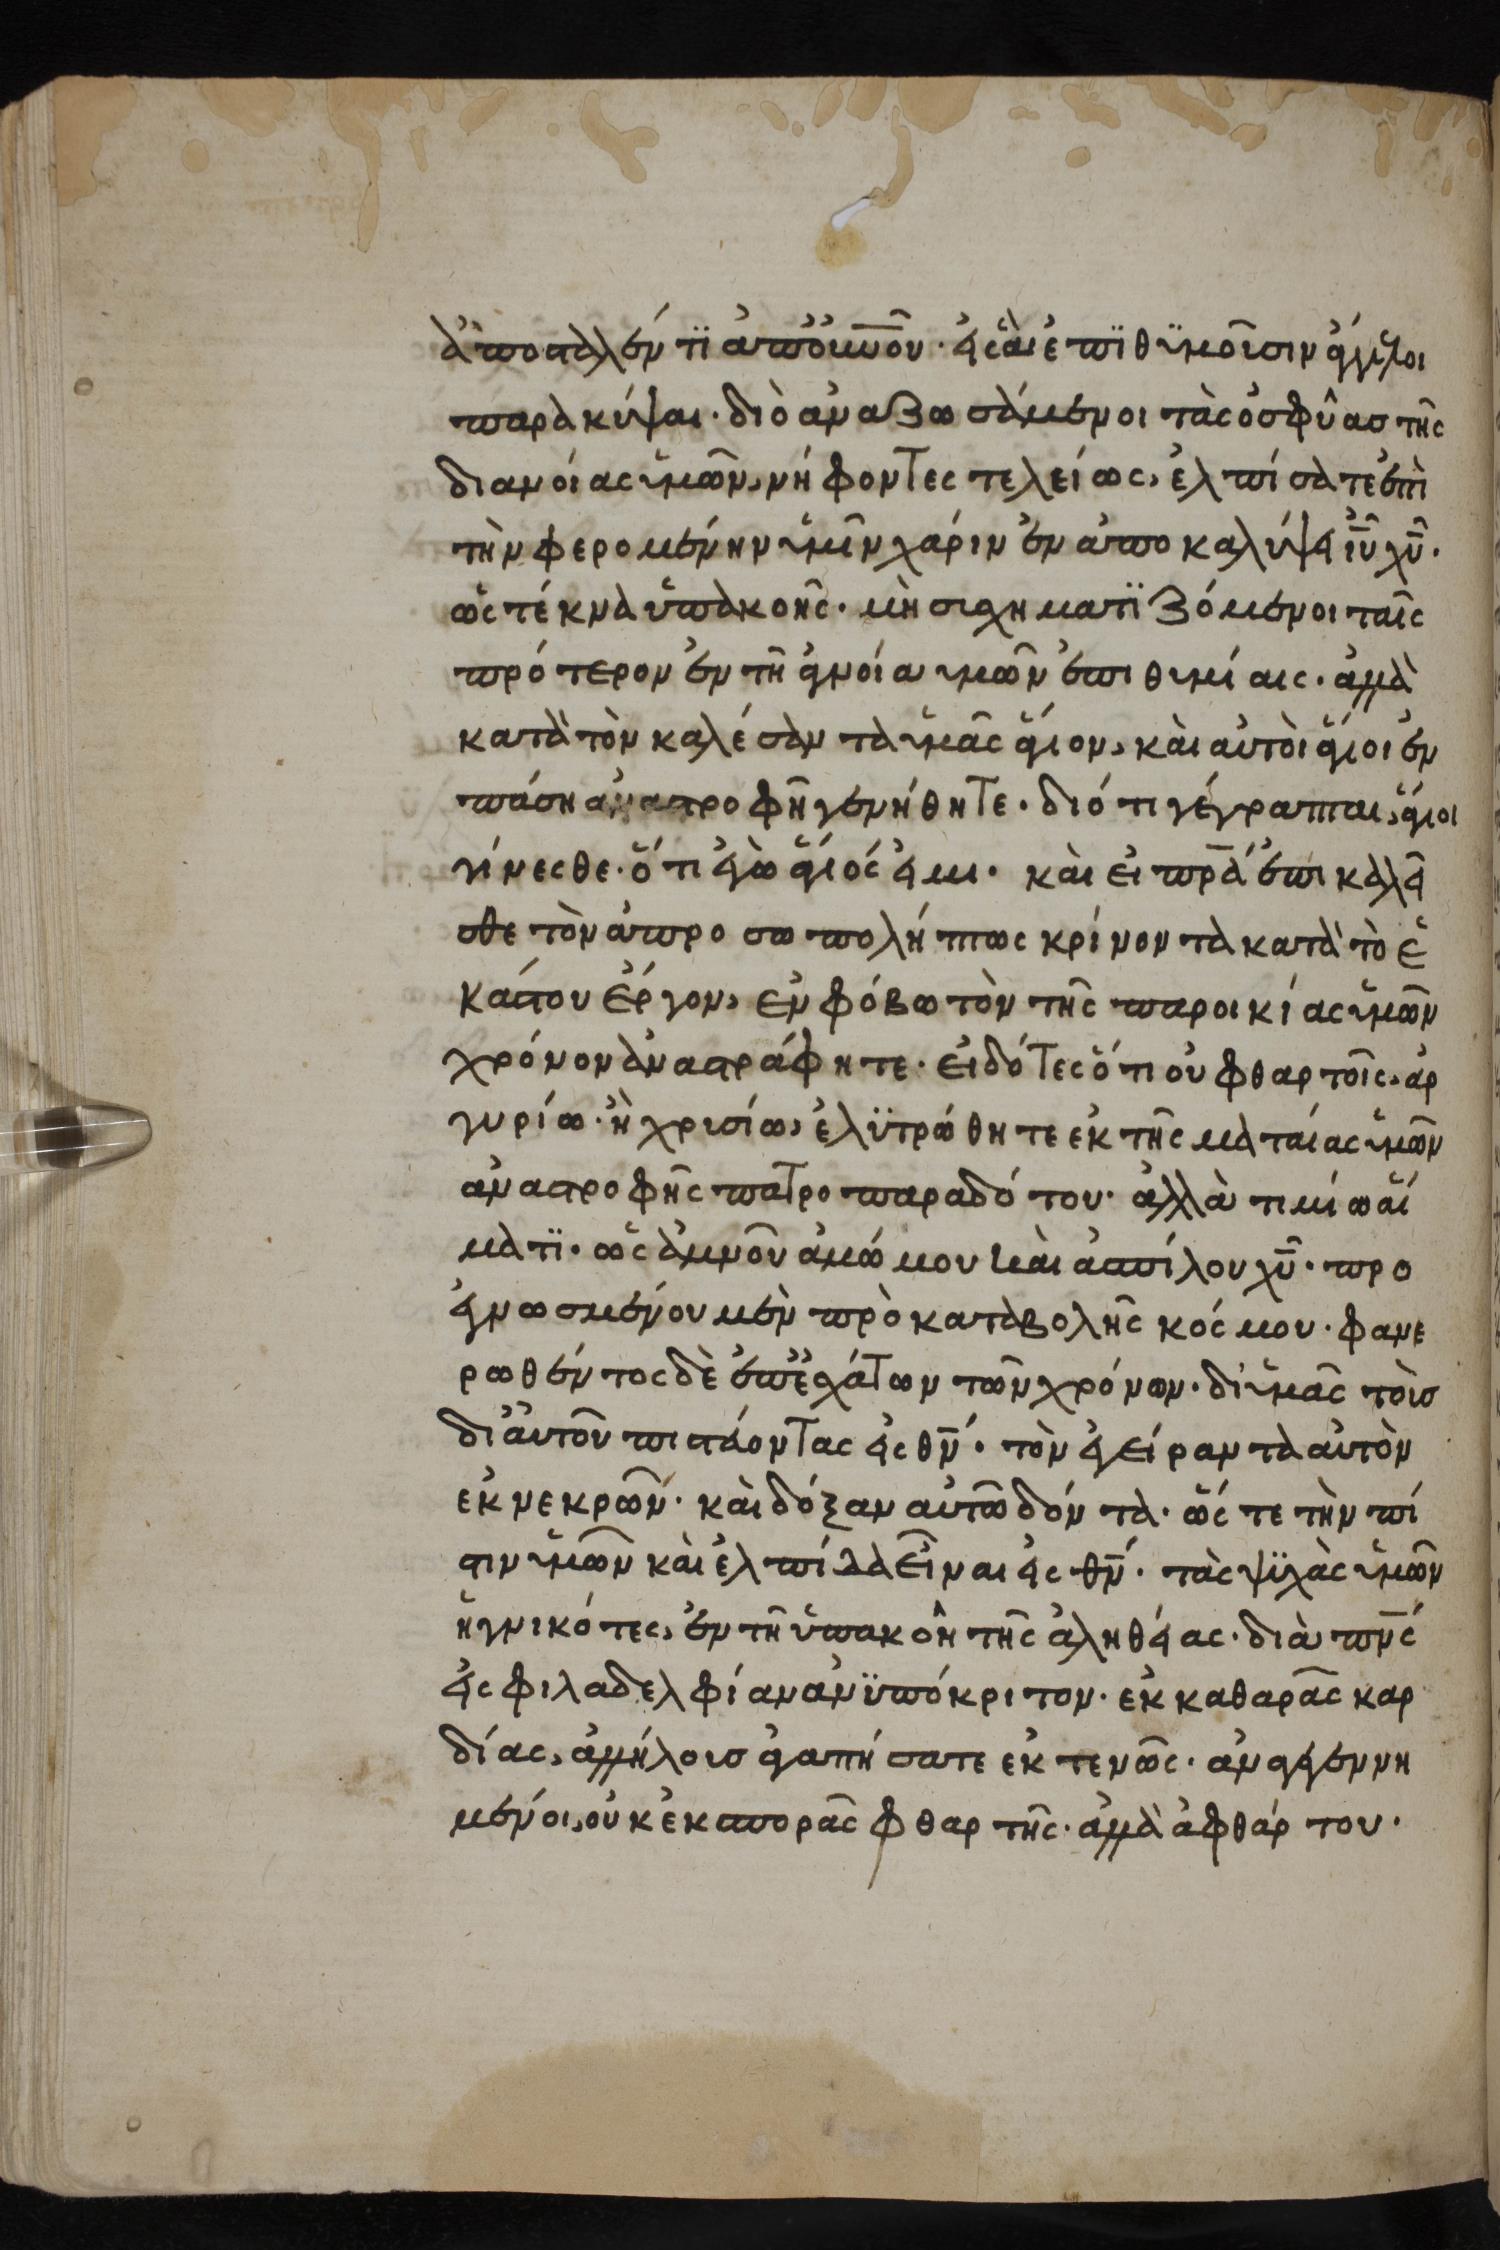 ἀποσταλέντϊ ἀποὐνοῦ· εἰς ἃ ἐπϊθϋμοῦσιν ἄγγελοι
παρακύψαι· διὸ ἀναζωσάμενοι τὰς ὀσφῦας τῆς
διανοίας ὑμῶν, νήφοντες τελείως, ἐλπίσατε ἐπὶ
τὴν φερομένην ὑμῖν χάριν ἐν ἀποκαλύψει ἰῦ χῦ·
ὡς τέκνα ὑπακοῆς· μὴ συσχηματϊζόμενοι ταῖς
πρότερον ἐν τῆ ἀγνοία ὑμῶν ἐπιθυμίαις· ἀλλὰ
κατὰ τὸν καλέσαντα ὑμᾶς ἅγιον, καὶ αὐτοὶ ἅγιοι ἐν
πάση ἀναστροφῆ γενήθητε· διότι γέγραπται, ἅγιοι
γίνεσθε· ὅτι ἐγὼ ἅγιός εἰμι· καὶ εἰ πρ̅α ἐπικαλεῖ
σθε τὸν ἀπροσωπολήπτως κρίνοντα κατὰ τὸ ἑ
κάστου ἔργον, ἐν φόβω τὸν τῆς παροικίας ὑμῶν
χρόνον ἀναστράφητε· εἰδότες ὅτι οὐ φθαρτοῖς, ἀρ
γυρίω· ἢ χρυσίω, ἐλϋτρώθητε ἐκ τῆς ματαίας ὑμῶν
ἀναστροφῆς πατροπαραδότου· ἀλλὰ τιμίω αἵ
ματϊ· ὡς ἀμνοῦ ἀμώμου καὶ ἀσπίλου χῦ· προ
εγνωσμένου μὲν πρὸ καταβολῆς κόσμου· φανε
ρωθέντος δὲ ἐπἐσχάτων τῶν χρόνων· δι’ ὑμᾶς τοὺς
δι’ αὐτοῦ πιστεύοντας εἰς θν̅· τὸν ἐγείραντα αὐτὸν
ἐκ νεκρῶν· καὶ δόξαν αὐτῶ δόντα· ὥστε τὴν πί
στιν ὑμῶν καὶ ἐλπίδα εἶναι εἰς θν̅· τὰς ψϋχὰς ὑμῶν
ἡγνικότες, ἐν τῆ ὑπακοῆ τῆς ἀληθείας· διὰ πν̅ς
εἰς φιλαδελφίαν ἀνϋπόκριτον· ἐκ καθαρᾶς καρ
δίας, ἀλλήλους ἀγαπήσατε ἐκτενῶς· ἀναγεγεννη
μένοι, οὐκ ἐκ σπορᾶς φθαρτῆς· ἀλλὰ ἀφθάρτου·